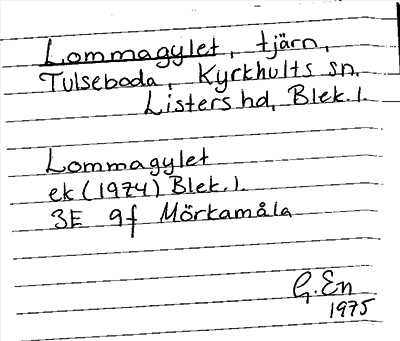 Lommagylet, tjärn,
Tulseboda, Kyrkhults sn.
Listers hd, Blek. l.
Lommagylet
ek (1974) Blek. l.
3E 9f Mörkamåla
G. En
1975